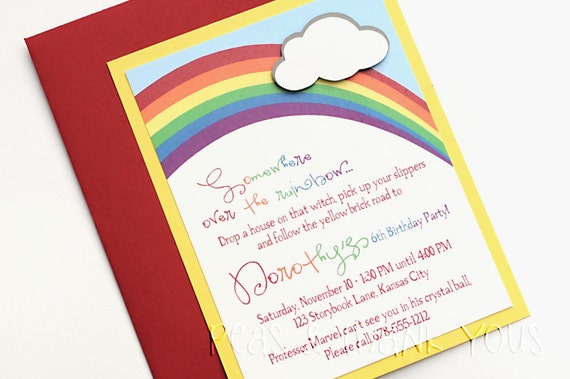 Somewhere
over the rainbow...
Drop a house on that witch, pick up your slippers
and follow the yellow brick road to
Dorothy's 6th Birthday Party!
Saturday, November 10 · 1:30 PM until 4:00 PM
123 Storybook Lane, Kansas City
Professor Marvel can't see you in his crystal ball,
Please call 678-555-1212
PEAS & THANK YOUS